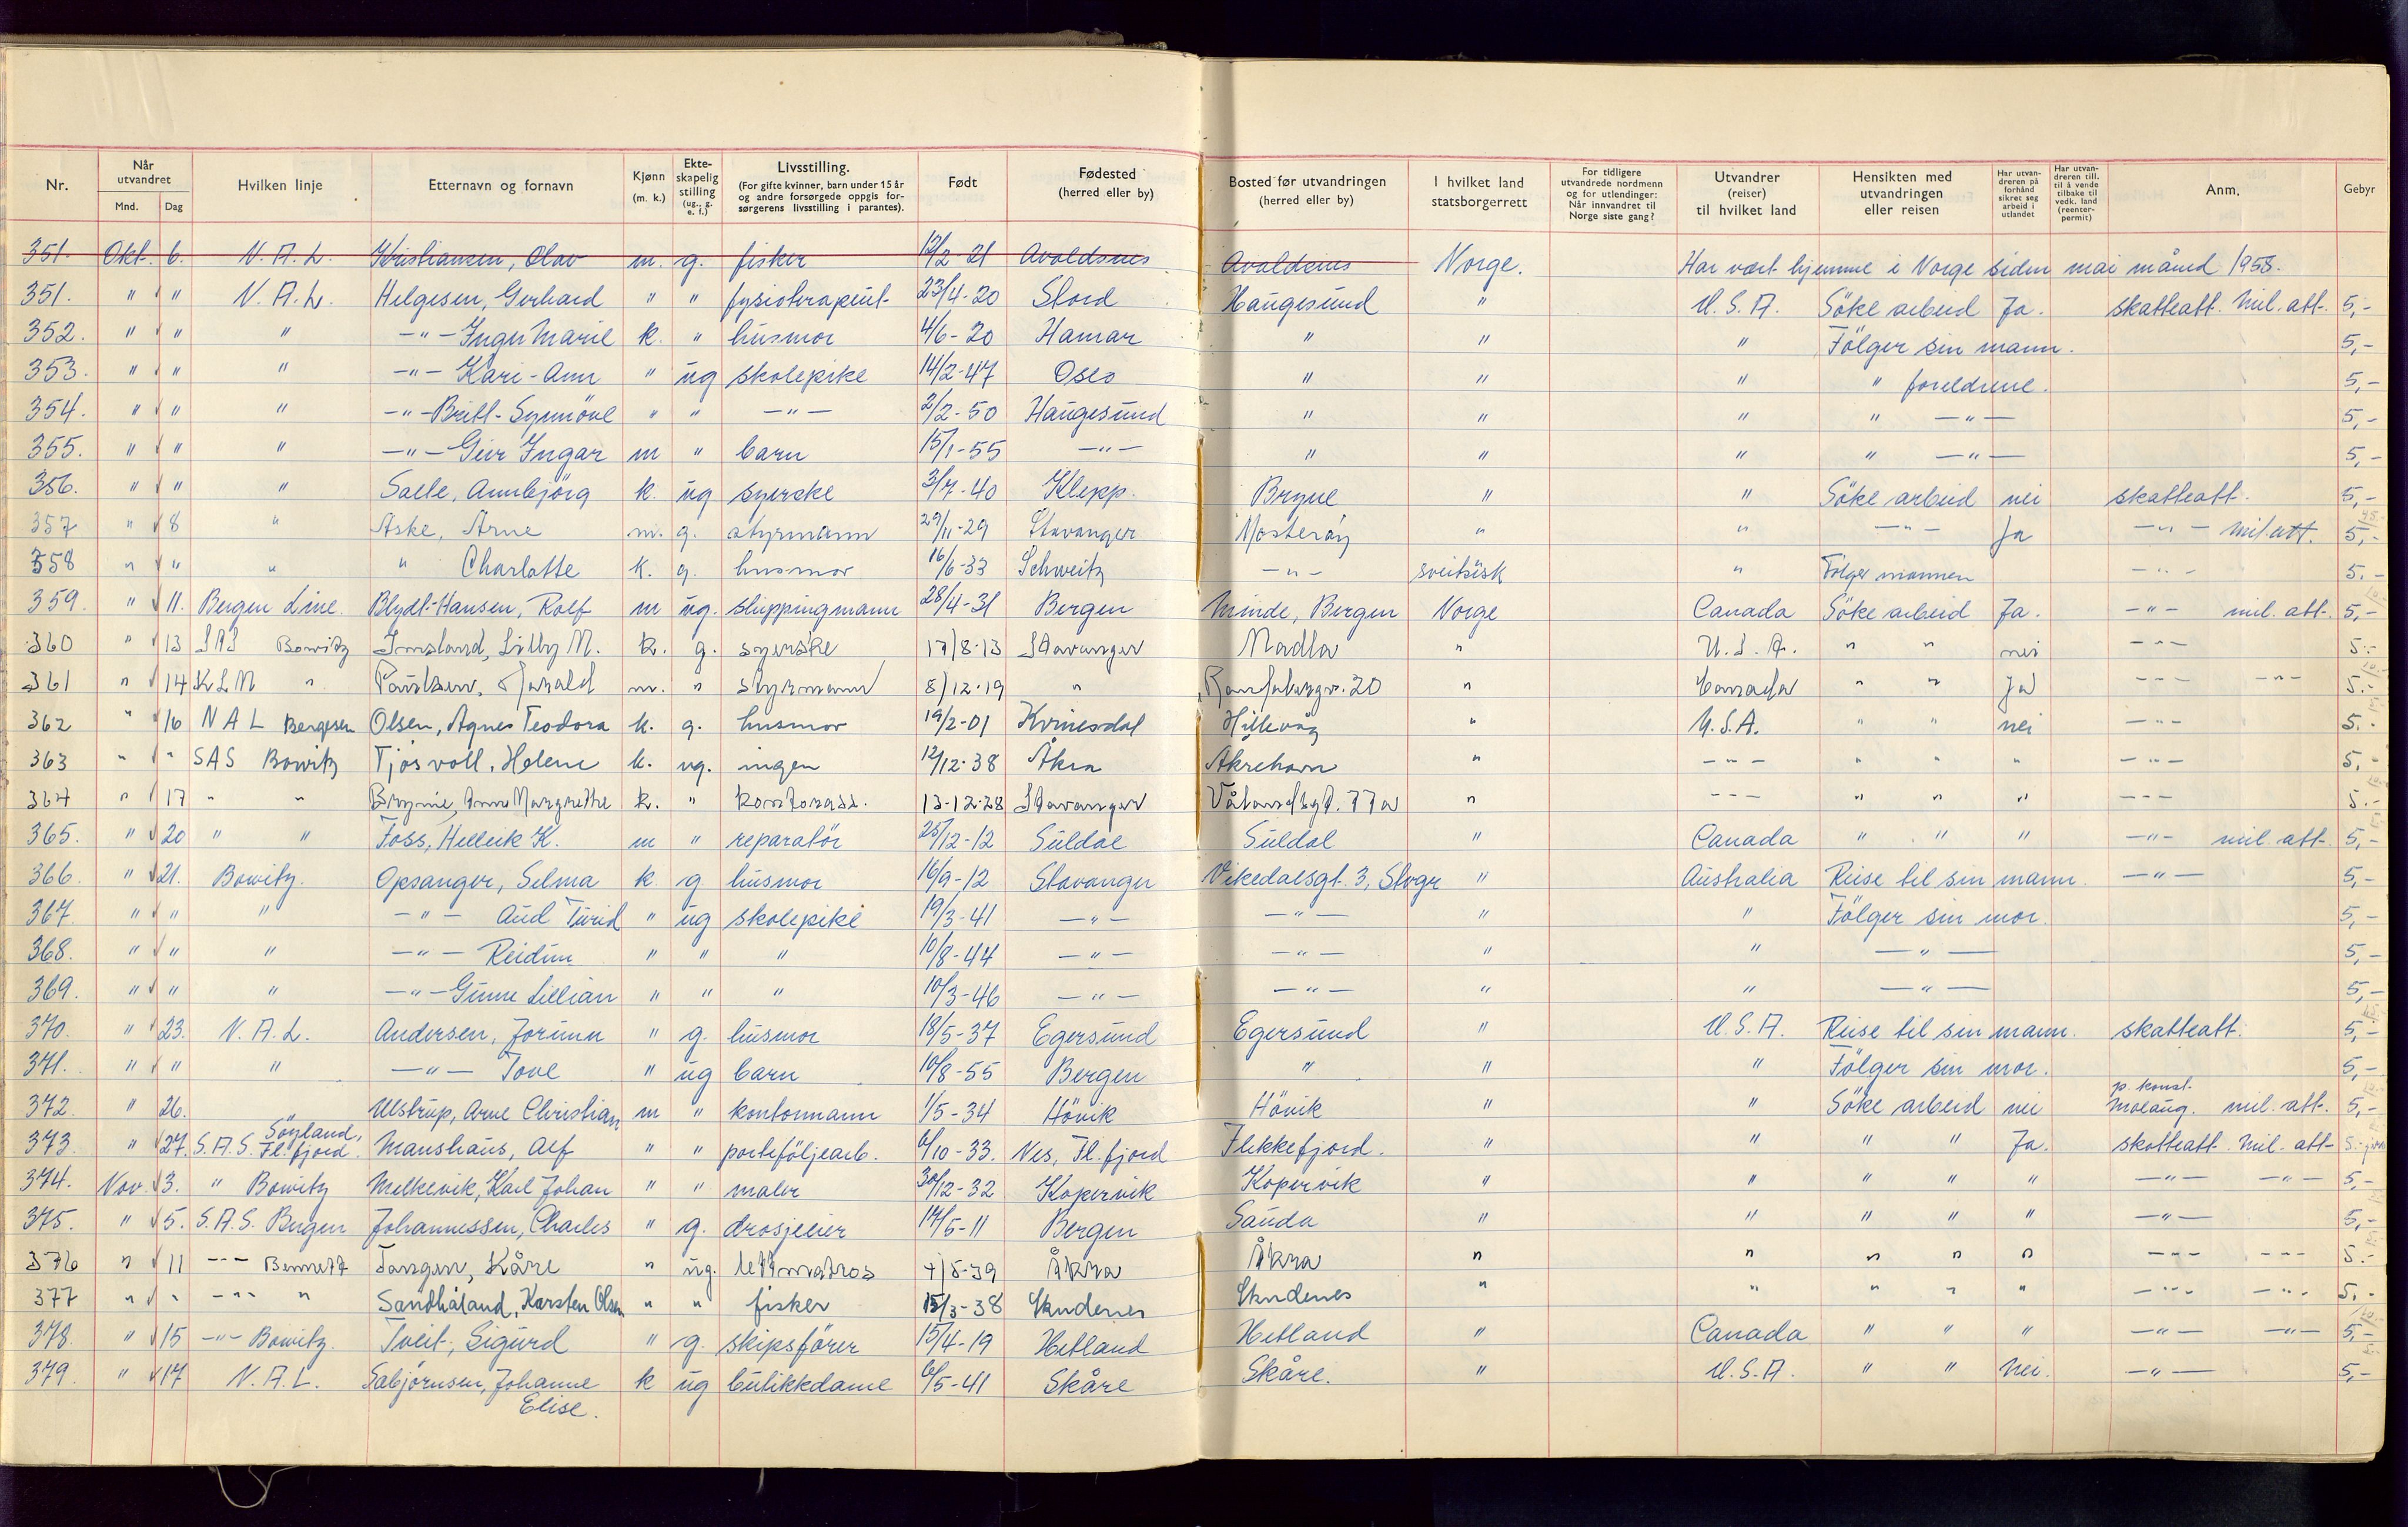 Nr. Når utvandret Mnd. Dag Hvilken linje Etternavn og fornavn Kjønn (m. k.) Ekteskapelig stilling (ug., g. e. f.) Livsstilling. (For gifte kvinner, barn under 15 år og andre forsørgede oppgis forsørgerens livsstilling i parantes). Født Fødested (herred eller by) Bosted før utvandringen (herred eller by) I hvilket land statsborgerrett For tidligere utvandrede nordmenn og for utlendinger: Når innvandret til Norge siste gang? Utvandrer (reiser) til hvilket land Hensikten med utvandringen eller reisen Har utvandreren på forhånd sikret seg arbeid i utlandet Har utvandreren till. til å vende tilbake til vedk. land (reenterpermit) Anm. Gebyr
351. Okt. 6. N.A.L. Kristiansen, Olav m. g. fisker 12/2-21 Avaldsnes Avaldsnes Norge. Har vært hjemme i Norge siden mai måned 1958.
351. " " N.A.L. Helgesen, Gerhard " " fysioterapeut 23/4-20 Stord Haugesund " U.S.A. Söke arbeid Ja. skatteatt. Mil. att. 5,-
352. " " " -"- Inger Marie k. " husmor 4/6-20 Hamar " " " Fölger sin mann. 5,-
353. " " " -"- Kari-Ann " ug skolepike 14/2-47 Oslo " " " " foreldrene. 5,-
354. " " " -"- Britt-Synnöve " " -"- 2/2-50 Haugesund " " " " -"- 5,-
355. " " " -"- Geir Ingar m " barn 15/1-55 -"- " " " " -"- 5,-
356. " " " Salte, Annbjörg k. ug syerske 3/7-40 Klepp. Bryne " " Söke arbeid nei skatteatt. 5,-
357 " 8 " Aske, Arne m. g. styrmann 29/11-29 Stavanger Mosteröy " " -"- Ja -"- mil. att. 5,-
358 " " " " Charlotte k. g. husmor 16/6-33 Schweitz -"- sveitsisk " Følger mannen -"- 5.-
359. " 11. Bergen Line. Blydt-Hansen, Rolf m ug. shippingmann 28/4-31 Bergen Minde, Bergen Norge Canada Söke arbeid Ja. -"- mil. att. 5,-
360 " 13 SAS Bowitz Imsland, Lilly M. k. g. syerske 17/8-13 Stavanger Madla " U.S.A. " " nei -"- 5.-
361 " 14 KLM " Paulsen, Harald m. " styrmann 8/12-19 " Ranfabergv. 20 " Canada " " Ja -"- -"- 5.-
362 " 16 NAL Bergesen Olsen, Agnes Teodora k. g. husmor 19/2-01 Kvinesdal Hillevåg " U.S.A. " " nei -"- 5.-
363 " " SAS Bowitz Tjösvoll, Helene k. ug. ingen 12/12-38 Åkra Åkrehavn " -"- " " " -"- 5,-
364 " 17 " " Bryne, Anne Margrethe k. " kontorass. 13-12-28 Stavanger Vålandsgt. 77a " -"- " " " -"- 5.-
365. " 20 " " Foss, Helleik K. m " reparatör 25/12-12 Suldal Suldal " Canada " " " -"- mil. att. 5,-
366. " 21. Bowitz. Opsanger, Selma k. g. husmor 16/9-12 Stavanger Vikedalsgt. 3, Stvgr " Australia Reise til sin mann. -"- 5,-
367. " " " -"- Aud Turid " ug skolepike 19/3-41 -"- -"- " " Fölger sin mor. 5,-
368. " " " -"- Reidun " " " 10/8-44 -"- -"- " " -"- 5,-
369. " " " -"- Gunn Lillian " " " 10/3-46 -"- -"- " " -"- 5,-
370. " 23. N.A.L. Andersen, Jorunn " g. husmor 18/5-37 Egersund Egersund " U.S.A. Reise til sin mann. skatteatt. 5,-
371. " " " -"- Tove " ug barn 10/8-55 Bergen " " " Fölger sin mor. 5,-
372. " 26. " Ulstrup, Arne Christian m " kontormann 1/5-34 Hövik Hövik " " Söke arbeid nei p. konsl. Molaug. mil. att. 5,-
373. " 27. S.A.S. Söyland, Fl.fjord. Manshaus, Alf " " porteföljearb. 6/10-33. Nes, Fl.fjord Flekkefjord. " " " " Ja. skatteatt. Mil. att. 5.-
374. Nov. 3. " Bowitz Melkevik, Karl Johan " " maler 30/12-32 Kopervik Kopervik " " " " " -"- -"- 5,-
375. " 5. S.A.S. Bergen Johannessen, Charles " g. drosjeeier 14/5-11 Bergen Sauda " " " " " -"- 5,-
376 " 11 -"- Bennett Tangen, Kåre " ug. lettmatros 4/5-39 Åkra Åkra " " " " " -"- -"- 5.-
377 " " -"- " Sandhåland, Karsten Olsen " " fisker 15/3-38 Skudenes Skudenes " " " " " -"- -"- 5,-
378. " 15 -"- Bowitz. Tveit, Sigurd " g. skipsförer 15/4-19 Hetland Hetland " Canada " " " -"- -"- 5,-
379. " 17 N.A.L. Sabjörnsen, Johanne k ug butikkdame 6/5-41 Skåre Skåre. " U.S.A. " " Nei. -"- 5,-
Elise.